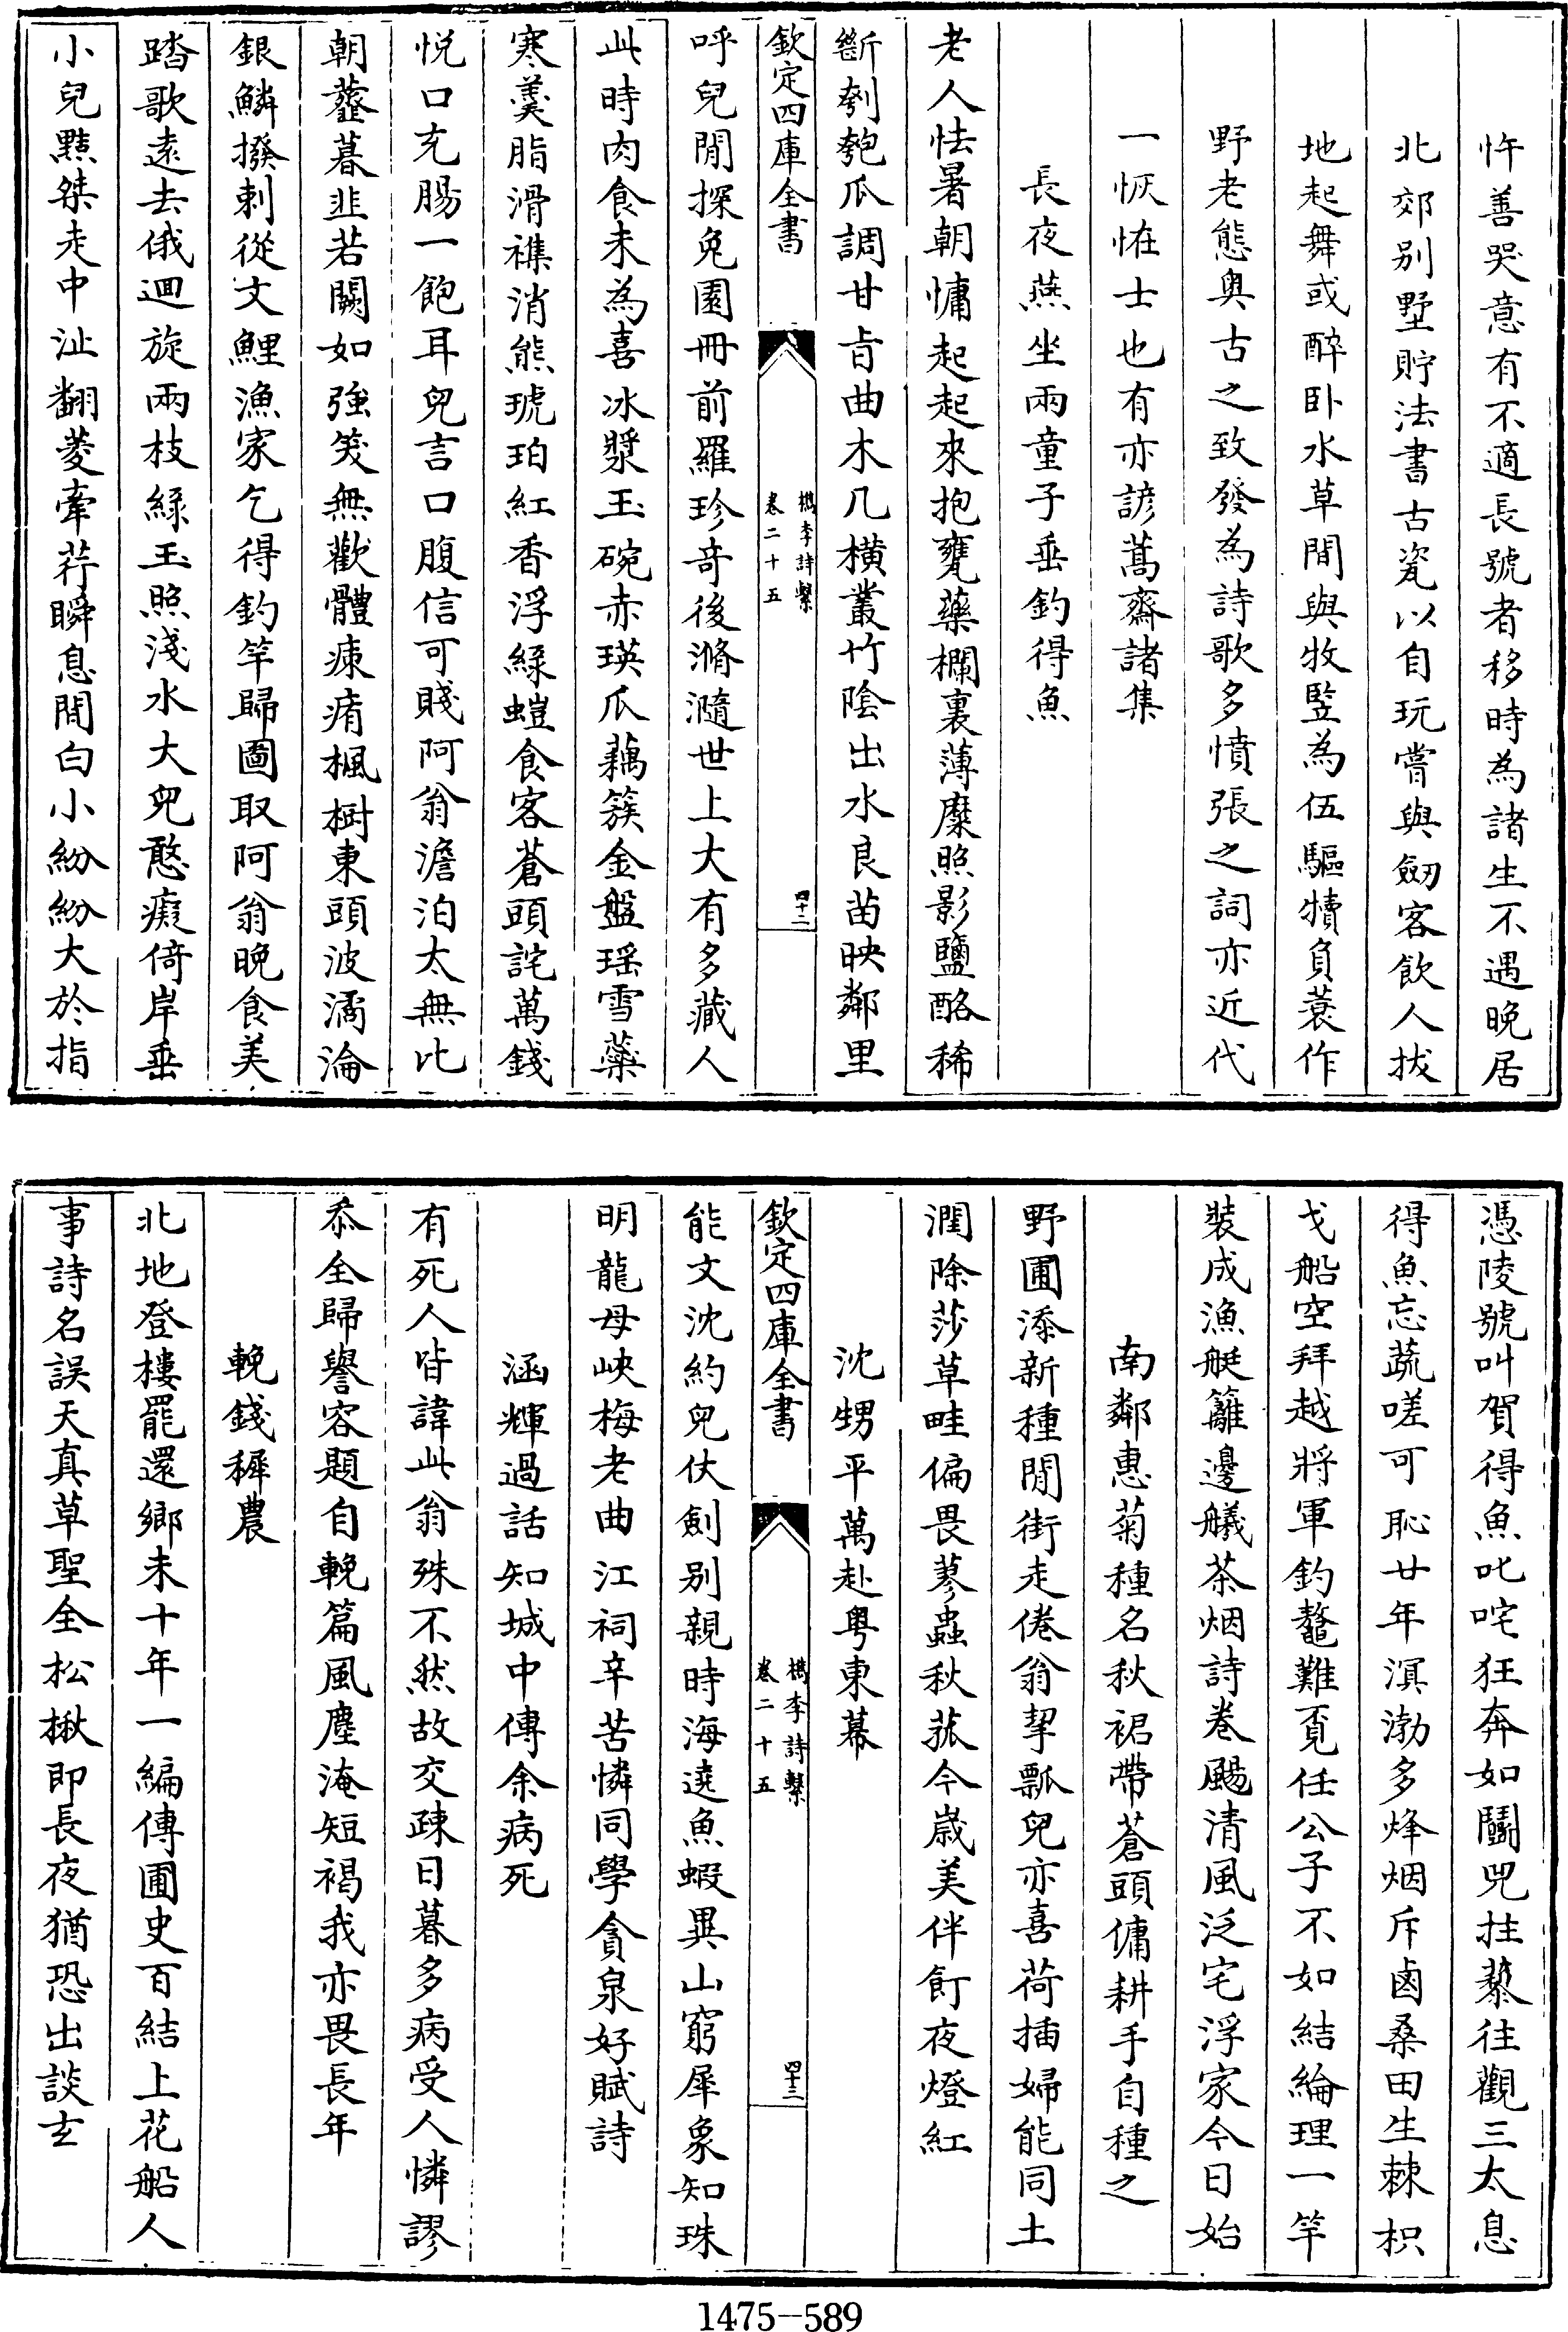 忤善哭意有不適長號者移時為諸生不遇晚居
北郊别墅貯法書古瓷以自玩嘗與劒客飲人㧞
地起舞或醉卧水草間與牧豎為伍驅犢負蓑作
野老態奥古之致發為詩歌多憤張之詞亦近代
一恢恠士也有亦諺蒿齋諸集
長夜燕坐兩童子垂釣得魚
老人怯暑朝慵起起來抱甕藥欄裏薄糜照影鹽酪稀
斷刳匏瓜調甘旨曲木几横叢竹陰出水良苗映鄰里
欽定四庫全書
檇李詩繫
卷二十五
四十二
呼兒閒探兔園冊前羅珍奇後滫瀡世上大有多藏人
此時肉食未為喜冰漿玉碗赤瑛瓜藕簇金盤瑶雪蘂
寒羮脂滑襍消熊琥珀紅香浮緑螘食客蒼頭詫萬錢
悦口充腸一飽耳兒言口腹信可賤阿翁澹泊太無比
朝虀暮韭若闕如強笑無歡體瘯痏楓樹東頭波潏淪
銀鱗撥剌從文鯉漁家乞得釣竿歸圖取阿翁晚食美
踏歌遠去俄迴旋兩枝緑玉照淺水大兒憨癡倚岸垂
小兒黠桀走中沚翻菱牽荇瞬息間白小紛紛大於指
憑陵號叫賀得魚叱咤狂奔如鬬兕拄藜往觀三太息
得魚忘蔬嗟可恥廿年溟渤多烽烟斥鹵桑田生棘枳
戈船空拜越將軍釣鼇難覓任公子不如結綸理一竿
裝成漁艇籬邊艤茶烟詩卷颺清風泛宅浮家今日始
南鄰惠菊種名秋裙帶蒼頭傭耕手自種之
野圃添新種閒街走倦翁挈瓢兒亦喜荷插婦能同土
潤除莎草畦偏畏蓼蟲秋菰今歳美伴飣夜燈紅
沈甥平萬赴粤東幕
欽定四庫全書
檇李詩繫
卷二十五
四十三
能文沈約兒仗劍别親時海遶魚蝦異山窮犀象知珠
明龍母峽梅老曲江祠辛苦憐同學貪泉好賦詩
涵輝過話知城中傳余病死
有死人皆諱此翁殊不然故交疎日暮多病受人憐謬
忝全歸譽容題自輓篇風塵淹短褐我亦畏長年
輓錢穉農
北地登樓罷還鄉未十年一編傳圃史百結上花船人
事詩名誤天真草聖全松楸即長夜猶恐出談𤣥
1475—589